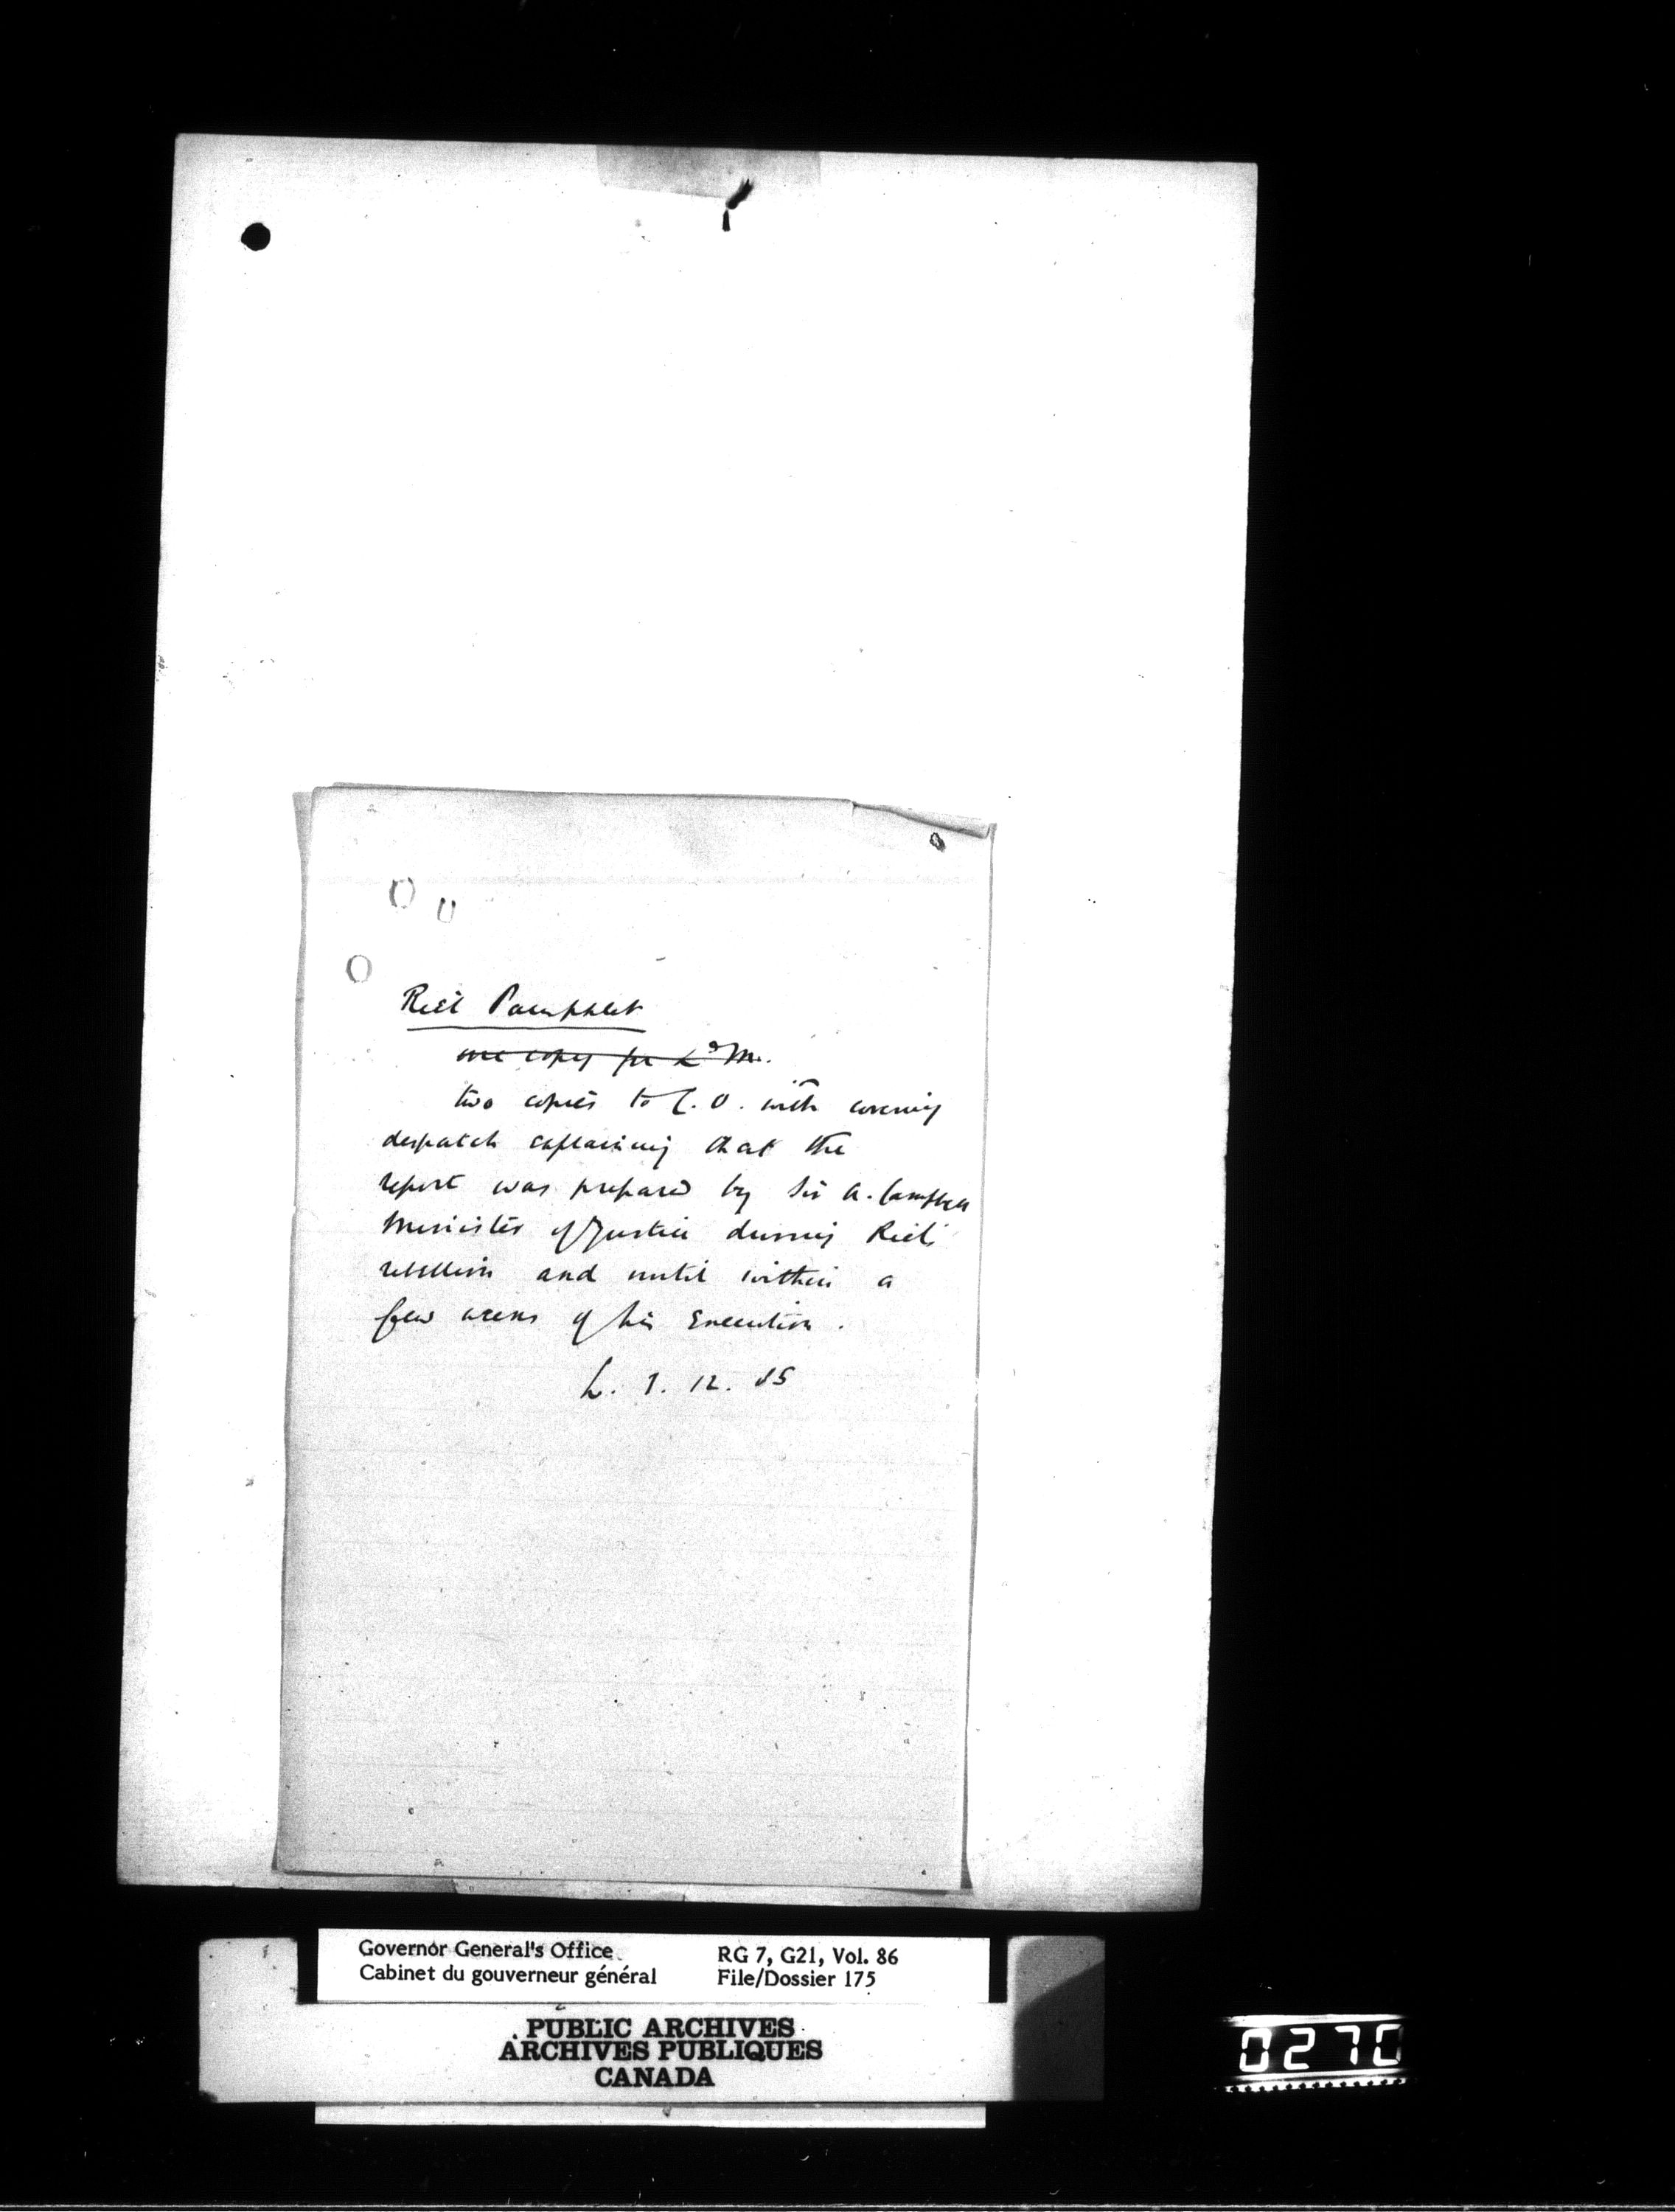 Riel Pamphlet
one copy for Ld M.
two copies to C.O. with covering
despatch explaining that the
report was prepared by Sir A. Campbell
Minister of Justice during Riel's
rebellion and until within a
few weeks of his execution.
L. 1. 12. 85
Governor General's Office RG 7, G21, Vol. 86
Cabinet du gouverneur général File/Dossier 175
PUBLIC ARCHIVES
ARCHIVES PUBLIQUES
CANADA
0270